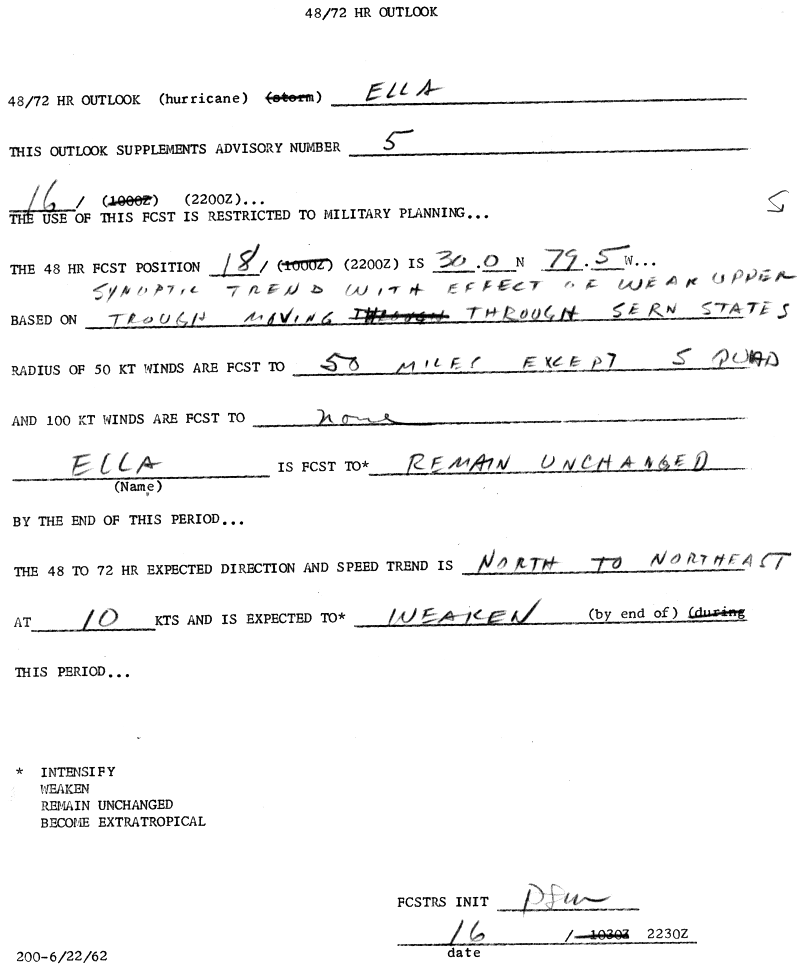 48/72 HR OUTLOOK
48/72 HR OUTLOOK (hurricane) (storm) ELLA
THIS OUTLOOK SUPPLEMENTS ADVISORY NUMBER 5
16 / (1000Z) (2200Z)...
THE USE OF THIS FCST IS RESTRICTED TO MILITARY PLANNING...
THE 48 HR FCST POSITION 18 / (1000Z) (2200Z) IS 30.0 N 79.5 W...
SYNOPTIC TREND WITH EFFECT OF WEAK UPPER
BASED ON TROUGH MOVING THROUGH THROUGH SERN STATES
RADIUS OF 50 KT WINDS ARE FCST TO 50 MILES EXCEPT S QUAD
AND 100 KT WINDS ARE FCST TO none
ELLA IS FCST TO* REMAIN UNCHANGED
(Name)
BY THE END OF THIS PERIOD...
THE 48 TO 72 HR EXPECTED DIRECTION AND SPEED TREND IS NORTH TO NORTHEAST
AT 10 KTS AND IS EXPECTED TO* WEAKEN (by end of) (during
THIS PERIOD...
* INTENSIFY
WEAKEN
REMAIN UNCHANGED
BECOME EXTRATROPICAL
FCSTRS INIT
16 / 1030Z 2230Z
date
200-6/22/62